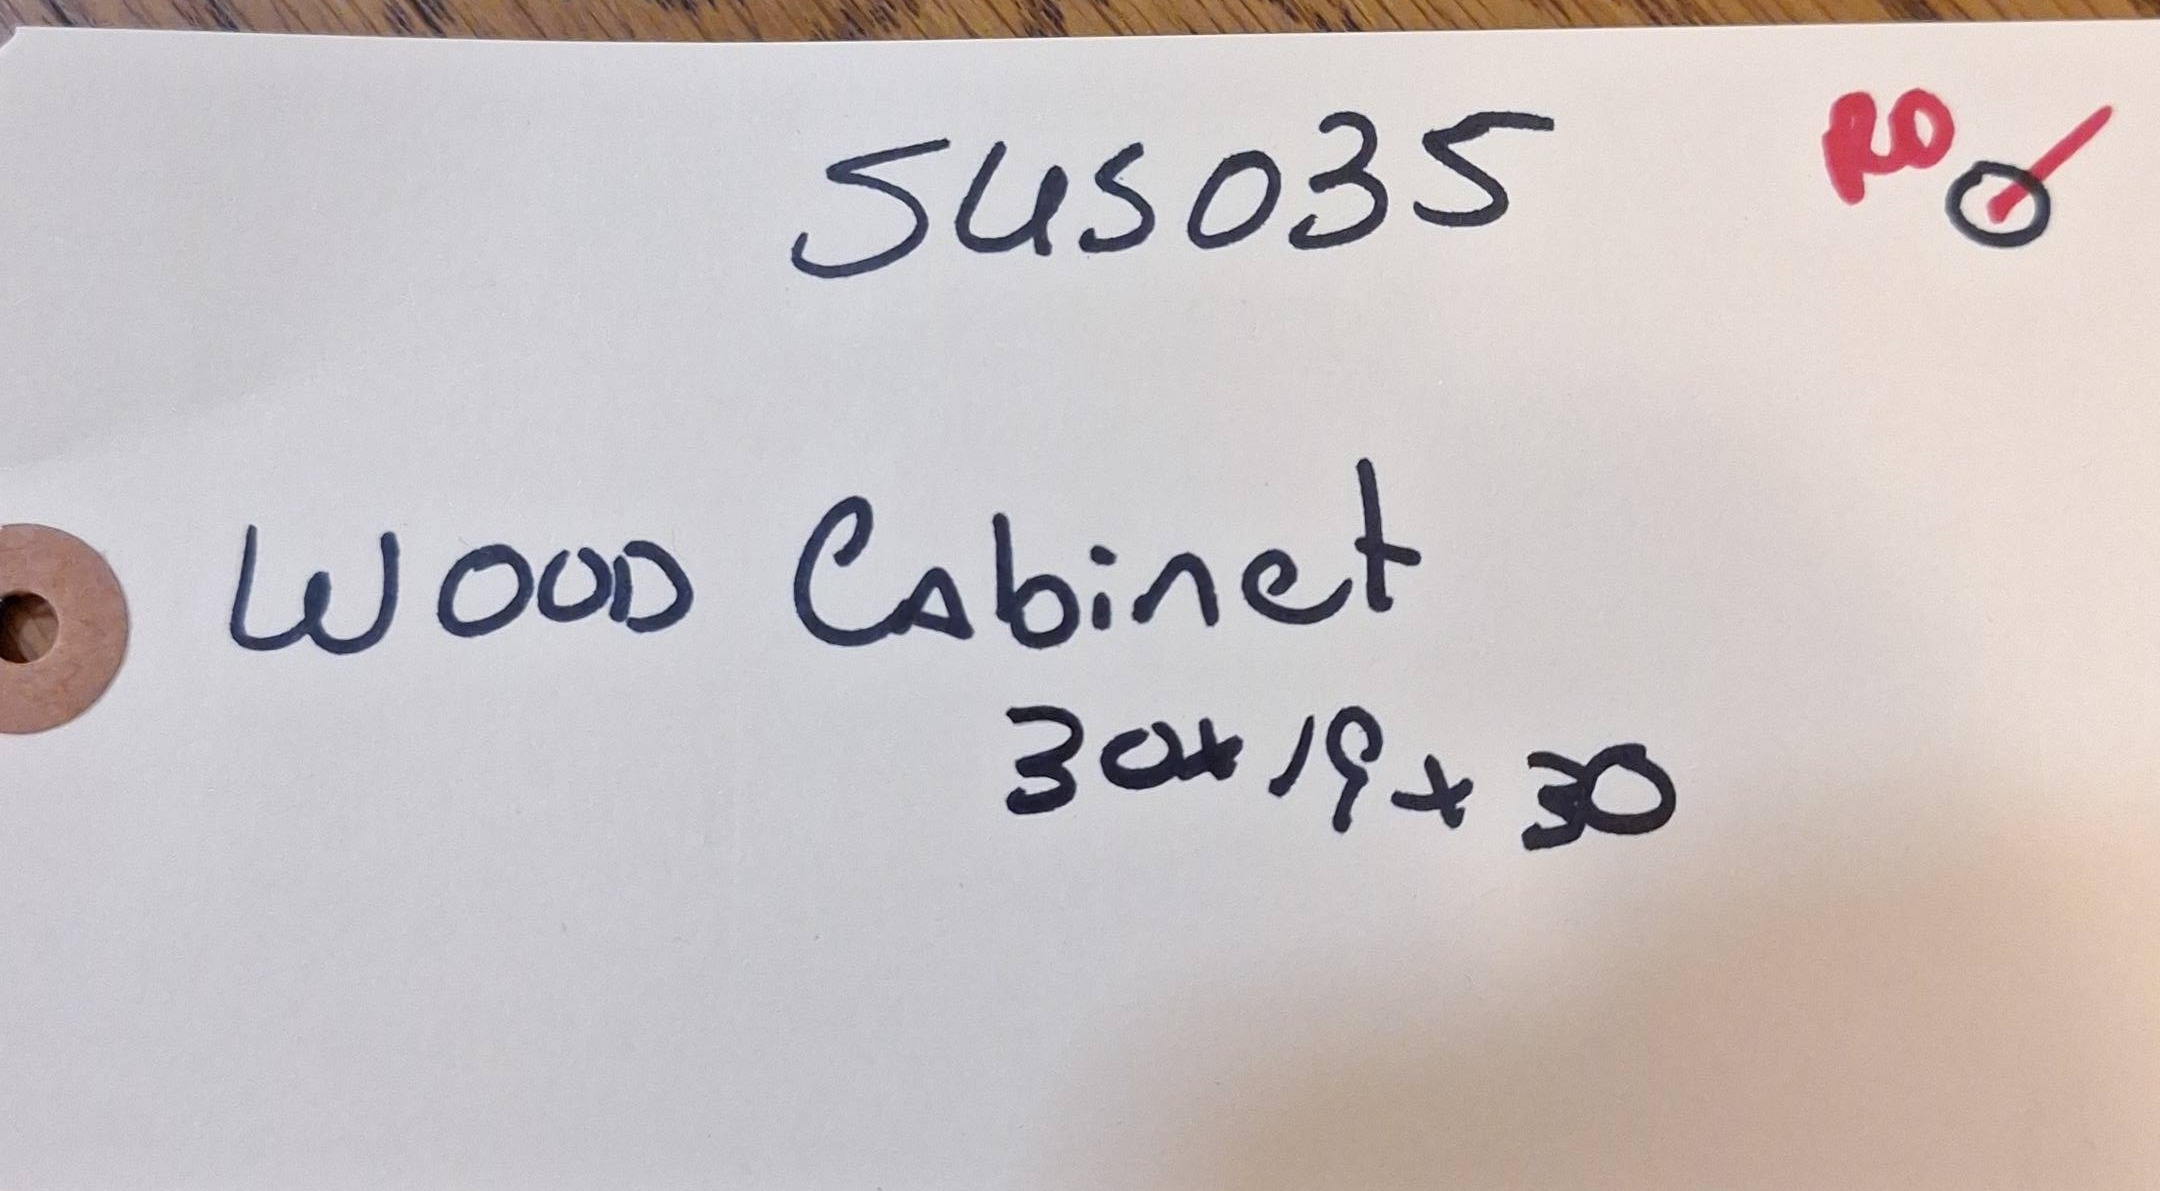 SUS035 RO
WOOD Cabinet
30x19x30